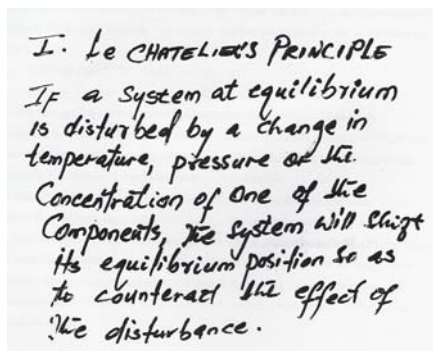 I. Le CHATELIER'S PRINCIPLE
IF a System at equilibrium
is disturbed by a change in
temperature, pressure or the
Concentration of One of the
Components, the system will shift
its equilibrium position so as
to counteract the effect of
the disturbance.